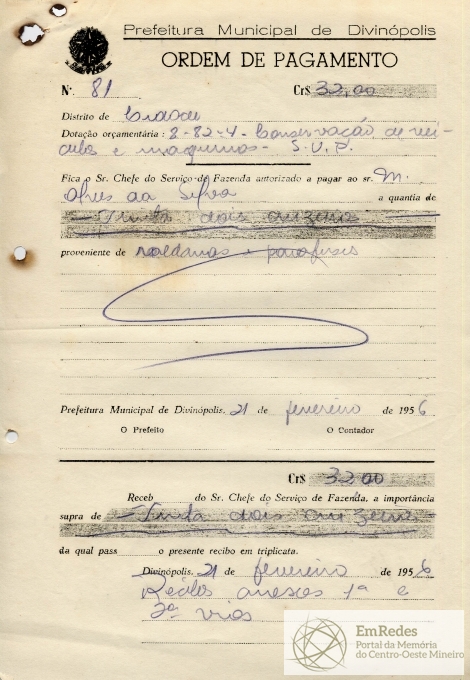 Prefeitura Municipal de Divinópolis
ORDEM DE PAGAMENTO
N.º 81 Cr$ 32,00
Distrito de Cidade
Dotação orçamentária : 8-82-4- Conservação de veí-
culos e maquinas - S.V.P.
Fica o Sr. Chefe do Serviço de Fazenda autorizado a pagar ao sr. M.
Alves da Silva a quantia de
Trinta dois cruzeiros
proveniente de roldanas e parafusos
Prefeitura Municipal de Divinópolis, 21 de fevereiro de 1956
O Prefeito O Contador
Cr$ 32,00
Receb do Sr. Chefe do Serviço de Fazenda, a importância
supra de Trinta dois cruzeiros
da qual pass o presente recibo em triplicata.
Divinópolis, 21 de fevereiro de 1956
anexos 1ª e
2ª vias
EmRedes
Portal da Memória
do Centro-Oeste Mineiro